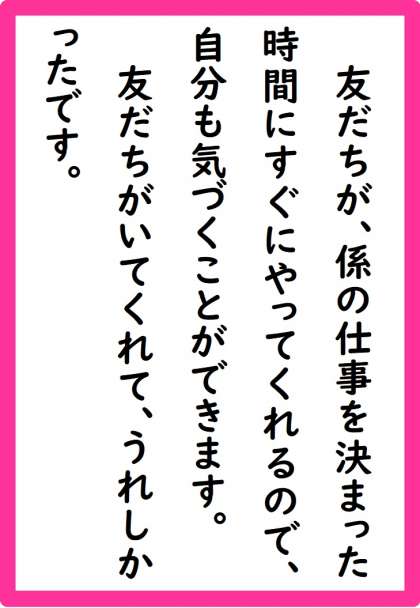 友だちが、係の仕事を決まった
時間にすぐにやってくれるので、
自分も気づくことができます。
友だちがいてくれて、うれしか
ったです。